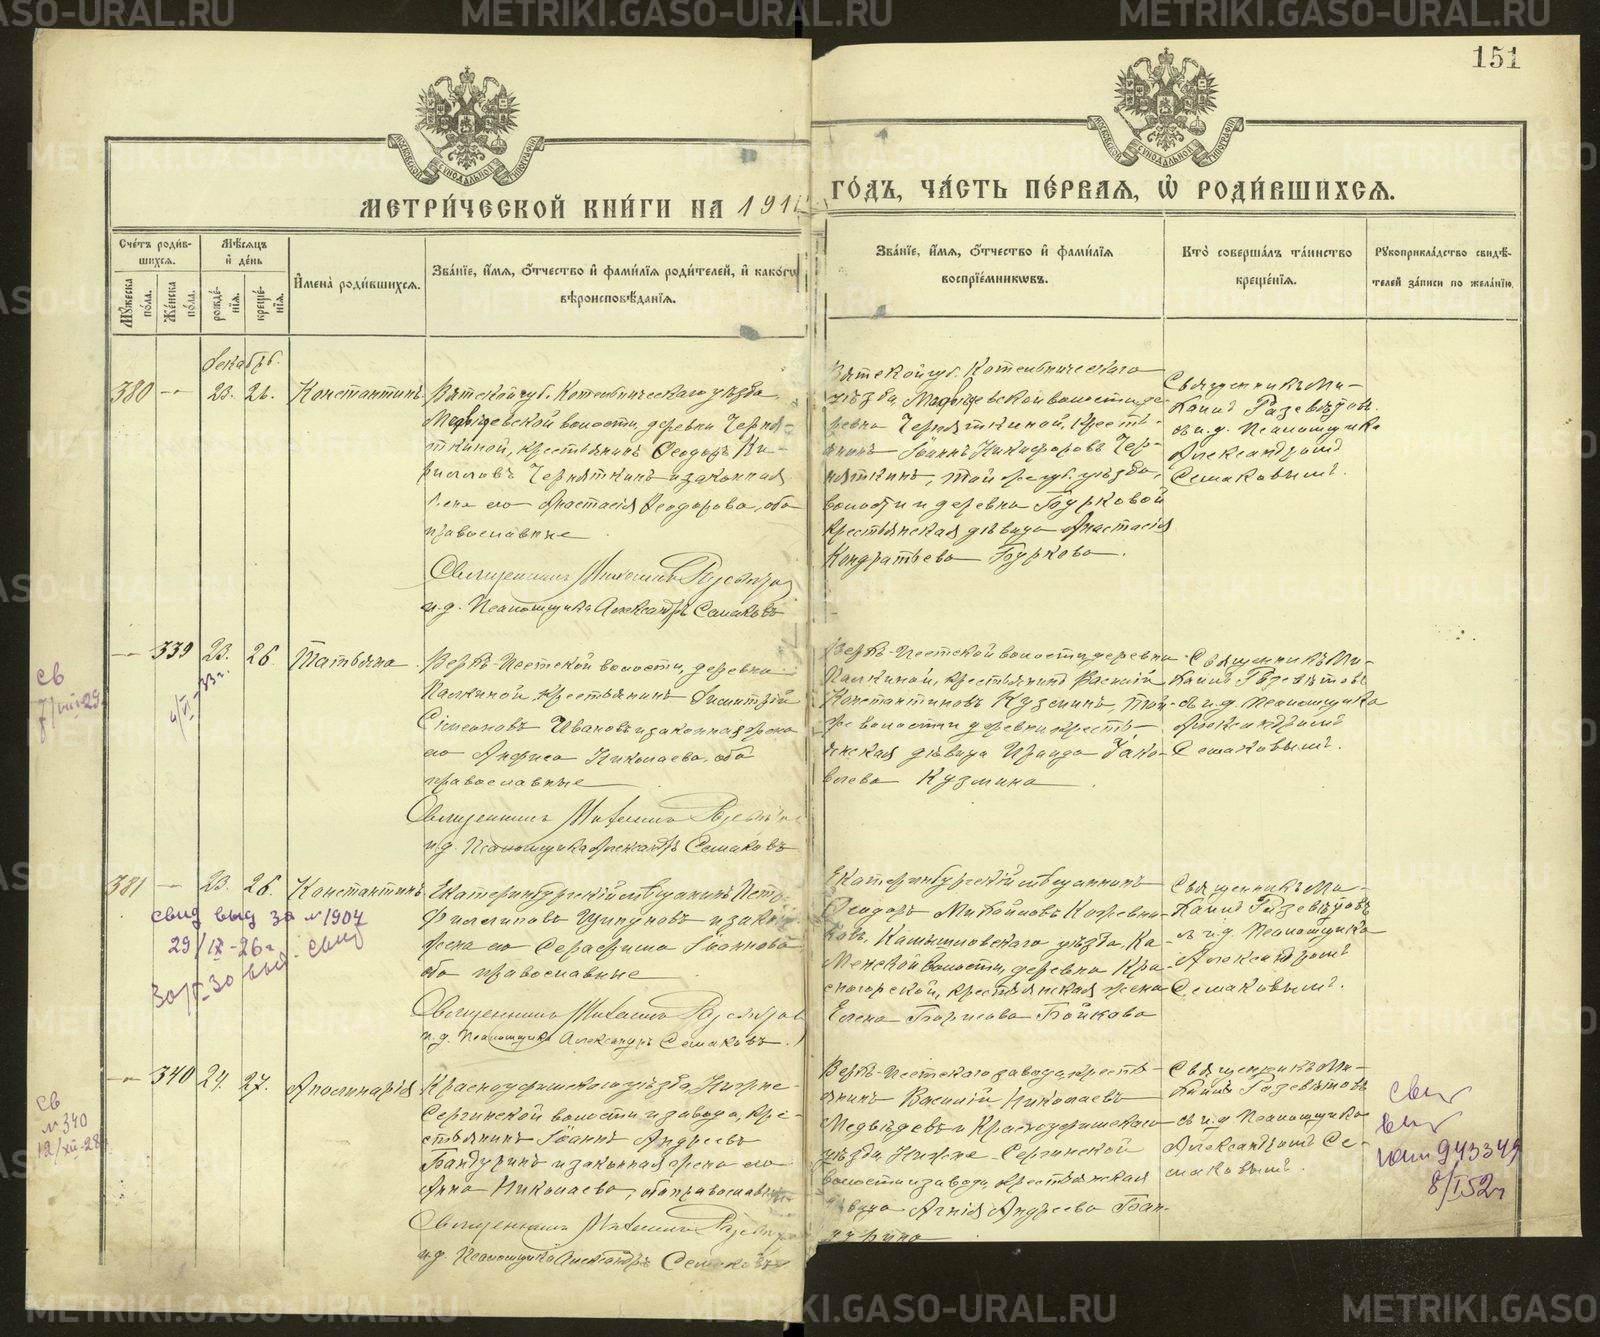 METRIKI.GASO-URAL.RU
151
МОСКОВСКОЙ СѴНОДАЛЬНОЙ ТИПОГРАФІИ
МОСКОВСКОЙ СѴНОДАЛЬНОЙ ТИПОГРАФІИ
МЕТРИ́ЧЕСКОЙ КНИ́ГИ НА 191
ГО́ДЪ, ЧА́СТЬ ПЕ́РВАЯ, Ѡ҆ РОДИ́ВШИХСЯ.
Сче́тъ роди́в-
шихся.
Мꙋ́жеска по́ла.
Же́нска по́ла.
Мѣ́сяцъ и҆ де́нь
рожде́-
нїя.
креще́-
нїя.
И҆мена̀ роди́вшихся.
Зва́нїе, и҆́мя, ѻ҆́тчество и҆ фами́лїя роди́телей, и҆ како́гѡ
вѣроисповѣ́данїя.
Зва́нїе, и҆́мя, ѻ҆́тчество и҆ фами́лїя
воспрїе́мникѡвъ.
Кто̀ соверша́лъ та́инство
креще́нїя.
Рꙋкоприкла́дство свидѣ́-
телей за́писи по жела́нїю.
Декабрь.
380 — 23. 26. Константинъ
Вятской губ. Котельническаго уѣзда
волости, деревни Черня-
ткиной, крестьянинъ Ѳеодоръ Ки-
рилловъ Черняткинъ и законная
жена его Анастасія Ѳеодорова, оба
православные
Священникъ Михаилъ
и. д. Псаломщика Александръ Семаковъ
Вятской губ. Котельническаго
уѣзда, волости, де-
ревни Черняткиной, кресть-
янинъ Іоаннъ Никифоровъ Чер-
няткинъ, той же губ. уѣзда,
волости и деревни Бурковой
крестьянская дѣвица Анастасія
Кондратьева Буркова.
Священникъ Ми-
хаилъ
съ и. д. Псаломщика
Александромъ
Семаковымъ.
— 339 23. 26 Татьяна
Верхъ-Исетской волости, деревни
Палкиной, крестьянинъ Димитрій
Симеоновъ Ивановъ и законная жена
его Анфиса Николаева, оба
православные
Священникъ Михаилъ
и. д. Псаломщика Александръ Семаковъ
Верхъ-Исетской волости, деревни
Палкиной, крестьянинъ Василій
Константиновъ Кузминъ, той-
же волости и деревни кресть-
янская дѣвица Ираида Яко-
влева Кузмина
Священникъ Ми-
хаилъ
съ и. д. Псаломщика
Александромъ
Семаковымъ.
св
4/VI-33 г.
381 — 23. 26. Константинъ
Екатеринбургскій мѣщанинъ Петръ
Филлиповъ Щипуновъ и закон
жена его Серафима Іоаннова
оба православные
Священникъ Михаилъ
и. д. Псаломщика Александръ Семаковъ.
Екатеринбургскій мѣщанинъ
Ѳеодоръ Михайловъ Кожевни-
ковъ, Камышловскаго уѣзда, Ка-
менской волости, деревни Кра-
сногорской, крестьянская жена
Елена Борисова Бойкова
Священникъ Ми-
хаилъ
съ и. д. Псаломщика
Александромъ
Семаковымъ.
свид выд за №1904
29/IX-26 г.
— 340 24. 27. Аполинарія
Красноуфимскаго уѣзда, Нижне-
Сергинской волости и завода, кре-
стьянинъ Іоаннъ Андреевъ
Бандуринъ и законная жена его
Анна Николаева, оба православные
Священникъ Михаилъ
и. д. Псаломщика Александръ Семаковъ
Верхъ-Исетскаго завода, кресть-
янинъ Василій Николаевъ
Медвѣдевъ и Красноуфимскаго
уѣзда, Нижне-Сергинской
волости и завода, крестьянская
дѣвица Агнія Андреева Бан-
дурина
Священникъ Ми-
хаилъ
съ и. д. Псаломщика
Александромъ Се-
маковымъ.
св
№340
12/XII-28 г.
943349
8/I 52 г